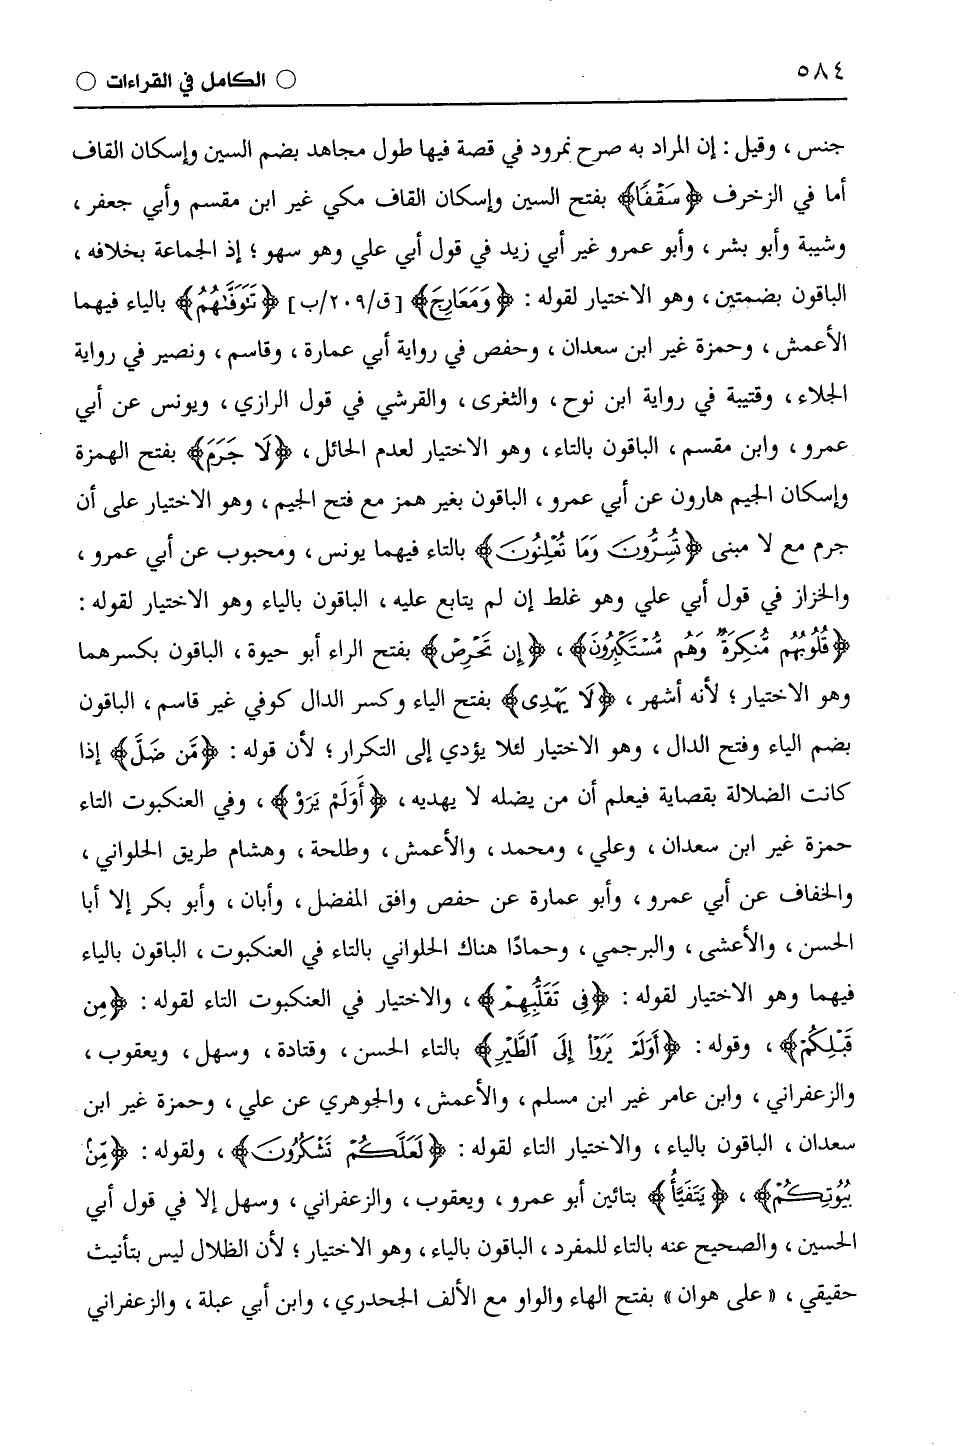 ٥٨٤
○ الكامل في القراءات ○
جنس ، وقيل : إن المراد به صرح نمرود في قصة فيها طول مجاهد بضم السين وإسكان القاف
أما في الزخرف ﴿سَقْفًا﴾ بفتح السين وإسكان القاف مكي غير ابن مقسم وأبي جعفر ،
وشيبة وأبو بشر ، وأبو عمرو غير أبي زيد في قول أبي علي وهو سهو ؛ إذ الجماعة بخلافه ،
الباقون بضمتين ، وهو الاختيار لقوله : ﴿وَمَعَارِجَ﴾ [ق/٢٠٩/ب] ﴿تَتَوَفَّىٰهُمُ﴾ بالياء فيهما
الأعمش ، وحمزة غير ابن سعدان ، وحفص في رواية أبي عمارة ، وقاسم ، ونصير في رواية
الجلاء ، وقتيبة في رواية ابن نوح ، والثغرى ، والقرشي في قول الرازي ، ويونس عن أبي
عمرو ، وابن مقسم ، الباقون بالتاء ، وهو الاختيار لعدم الحائل ، ﴿لَا جَرَمَ﴾ بفتح الهمزة
وإسكان الجيم هارون عن أبي عمرو ، الباقون بغير همز مع فتح الجيم ، وهو الاختيار على أن
جرم مع لا مبنى ﴿تُسِرُّونَ وَمَا تُعْلِنُونَ﴾ بالتاء فيهما يونس ، ومحبوب عن أبي عمرو ،
والخزاز في قول أبي علي وهو غلط إن لم يتابع عليه ، الباقون بالياء وهو الاختيار لقوله :
﴿قُلُوبُهُم مُّنكِرَةٌ وَهُم مُّسْتَكْبِرُونَ﴾ ، ﴿إِن تَحْرِصْ﴾ بفتح الراء أبو حيوة ، الباقون بكسرهما
وهو الاختيار ؛ لأنه أشهر ، ﴿لَا يَهْدِى﴾ بفتح الياء وكسر الدال كوفي غير قاسم ، الباقون
بضم الياء وفتح الدال ، وهو الاختيار لئلا يؤدي إلى التكرار ؛ لأن قوله : ﴿مَّن ضَلَّ﴾ إذا
كانت الضلالة بقصاية فيعلم أن من يضله لا يهديه ، ﴿أَوَلَمْ يَرَوْ﴾ ، وفي العنكبوت التاء
حمزة غير ابن سعدان ، وعلي ، ومحمد ، والأعمش ، وطلحة ، وهشام طريق الحلواني ،
والخفاف عن أبي عمرو ، وأبو عمارة عن حفص وافق المفضل ، وأبان ، وأبو بكر إلا أبا
الحسن ، والأعشى ، والبرجمي ، وحمادًا هناك الحلواني بالتاء في العنكبوت ، الباقون بالياء
فيهما وهو الاختيار لقوله : ﴿فِى تَقَلُّبِهِمْ﴾ ، والاختيار في العنكبوت التاء لقوله : ﴿مِن
قَبْلِكُمْ﴾ ، وقوله : ﴿أَوَلَمْ يَرَوْا إِلَى ٱلطَّيْرِ﴾ بالتاء الحسن ، وقتادة ، وسهل ، ويعقوب ،
والزعفراني ، وابن عامر غير ابن مسلم ، والأعمش ، والجوهري عن علي ، وحمزة غير ابن
سعدان ، الباقون بالياء ، والاختيار التاء لقوله : ﴿لَعَلَّكُمْ تَشْكُرُونَ﴾ ، ولقوله : ﴿مِّنۢ
بُيُوتِكُمْ﴾ ، ﴿يَتَفَيَّأُ﴾ بتائين أبو عمرو ، ويعقوب ، والزعفراني ، وسهل إلا في قول أبي
الحسين ، والصحيح عنه بالتاء للمفرد ، الباقون بالياء ، وهو الاختيار ؛ لأن الظلال ليس بتأنيث
حقيقي ، «على هوان» بفتح الهاء والواو مع الألف الجحدري ، وابن أبي عبلة ، والزعفراني